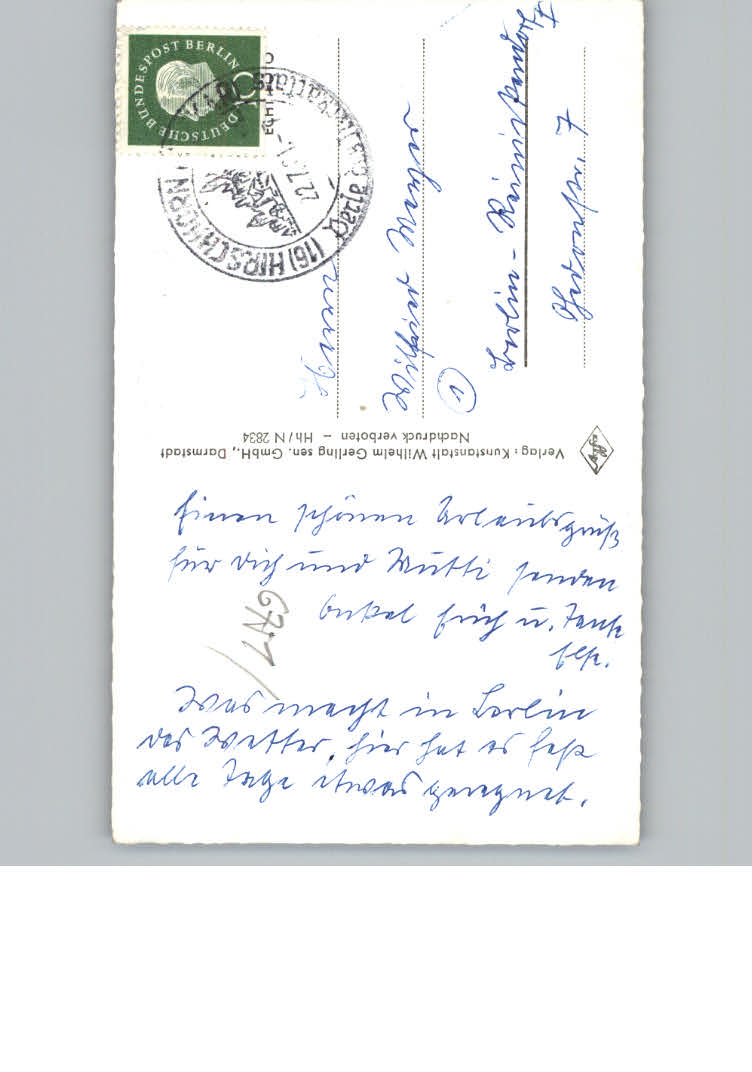 Einen schönen Urlaubsgruß
für Dich und Mutti senden
Onkel Erich u. Tante
Else.
Was macht in Berlin
das Wetter, hier hat es fast
alle Tage etwas geregnet.
6711
Verlag: Kunstanstalt Wilhelm Gerling sen. GmbH., Darmstadt
Nachdruck verboten – Hh/N 2834
DEUTSCHE BUNDESPOST BERLIN
10
(16) HIRSCHHORN
Perle des Neckartals
22.7.61
ECHT
Berlin-Reinickendorf
7